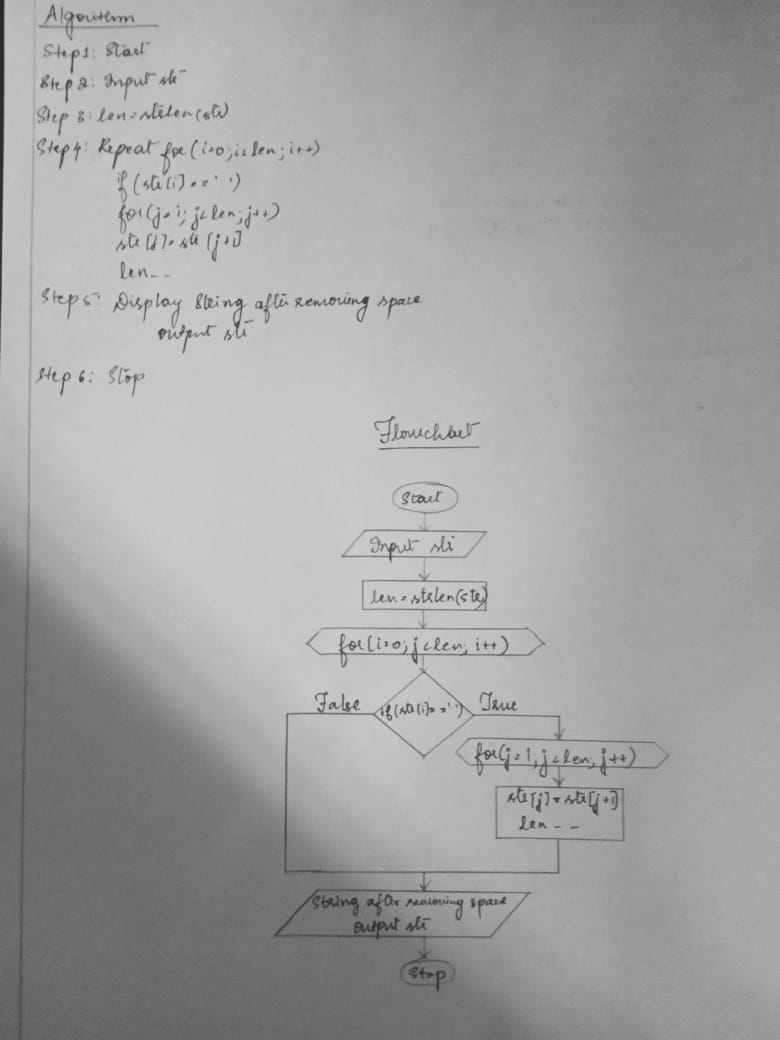 Algorithm
Step1: Start
Step 2: Input str
Step 3: len=strlen(str)
Step4: Repeat for(i=0;i<len;i++)
if(str[i]==' ')
for(j=i; j<len;j++)
str[j]=str[j+1]
len--
Step5: Display String after removing space
output str
Step 6: Stop
Flowchart
Start
Input str
len=strlen(str)
for(i=0;j<len; i++)
False if(str[i]==' ') True
for(j=i;j<len; j++)
str[j]=str[j+1]
len--
String after removing space
output str
Stop